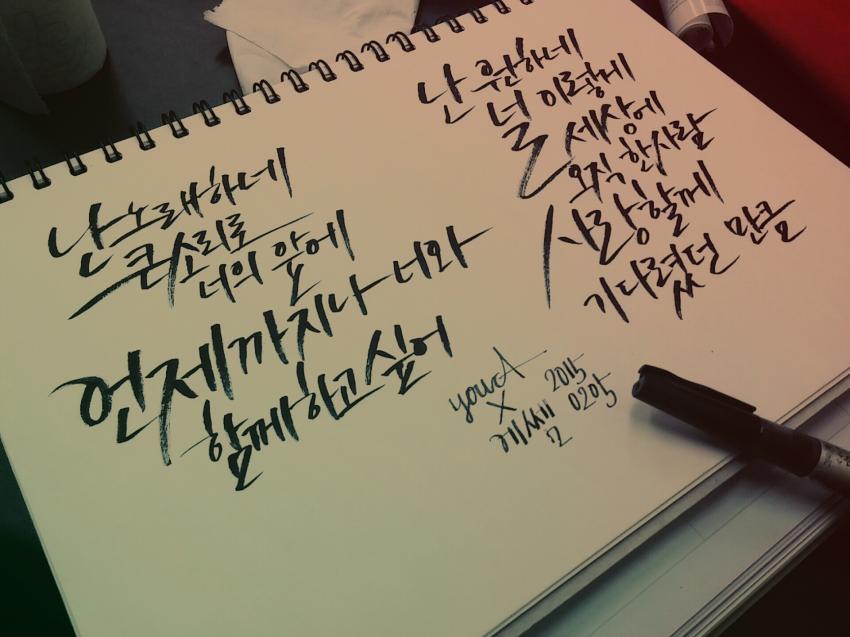 난 노래하네
큰 소리로
너의 앞에
언제까지나 너와
함께하고 싶어
난 원하네
널 이렇게
세상에
오직 한사람
사랑할께
기다렸던 만큼
yourA
X
에쎌
2015
0205